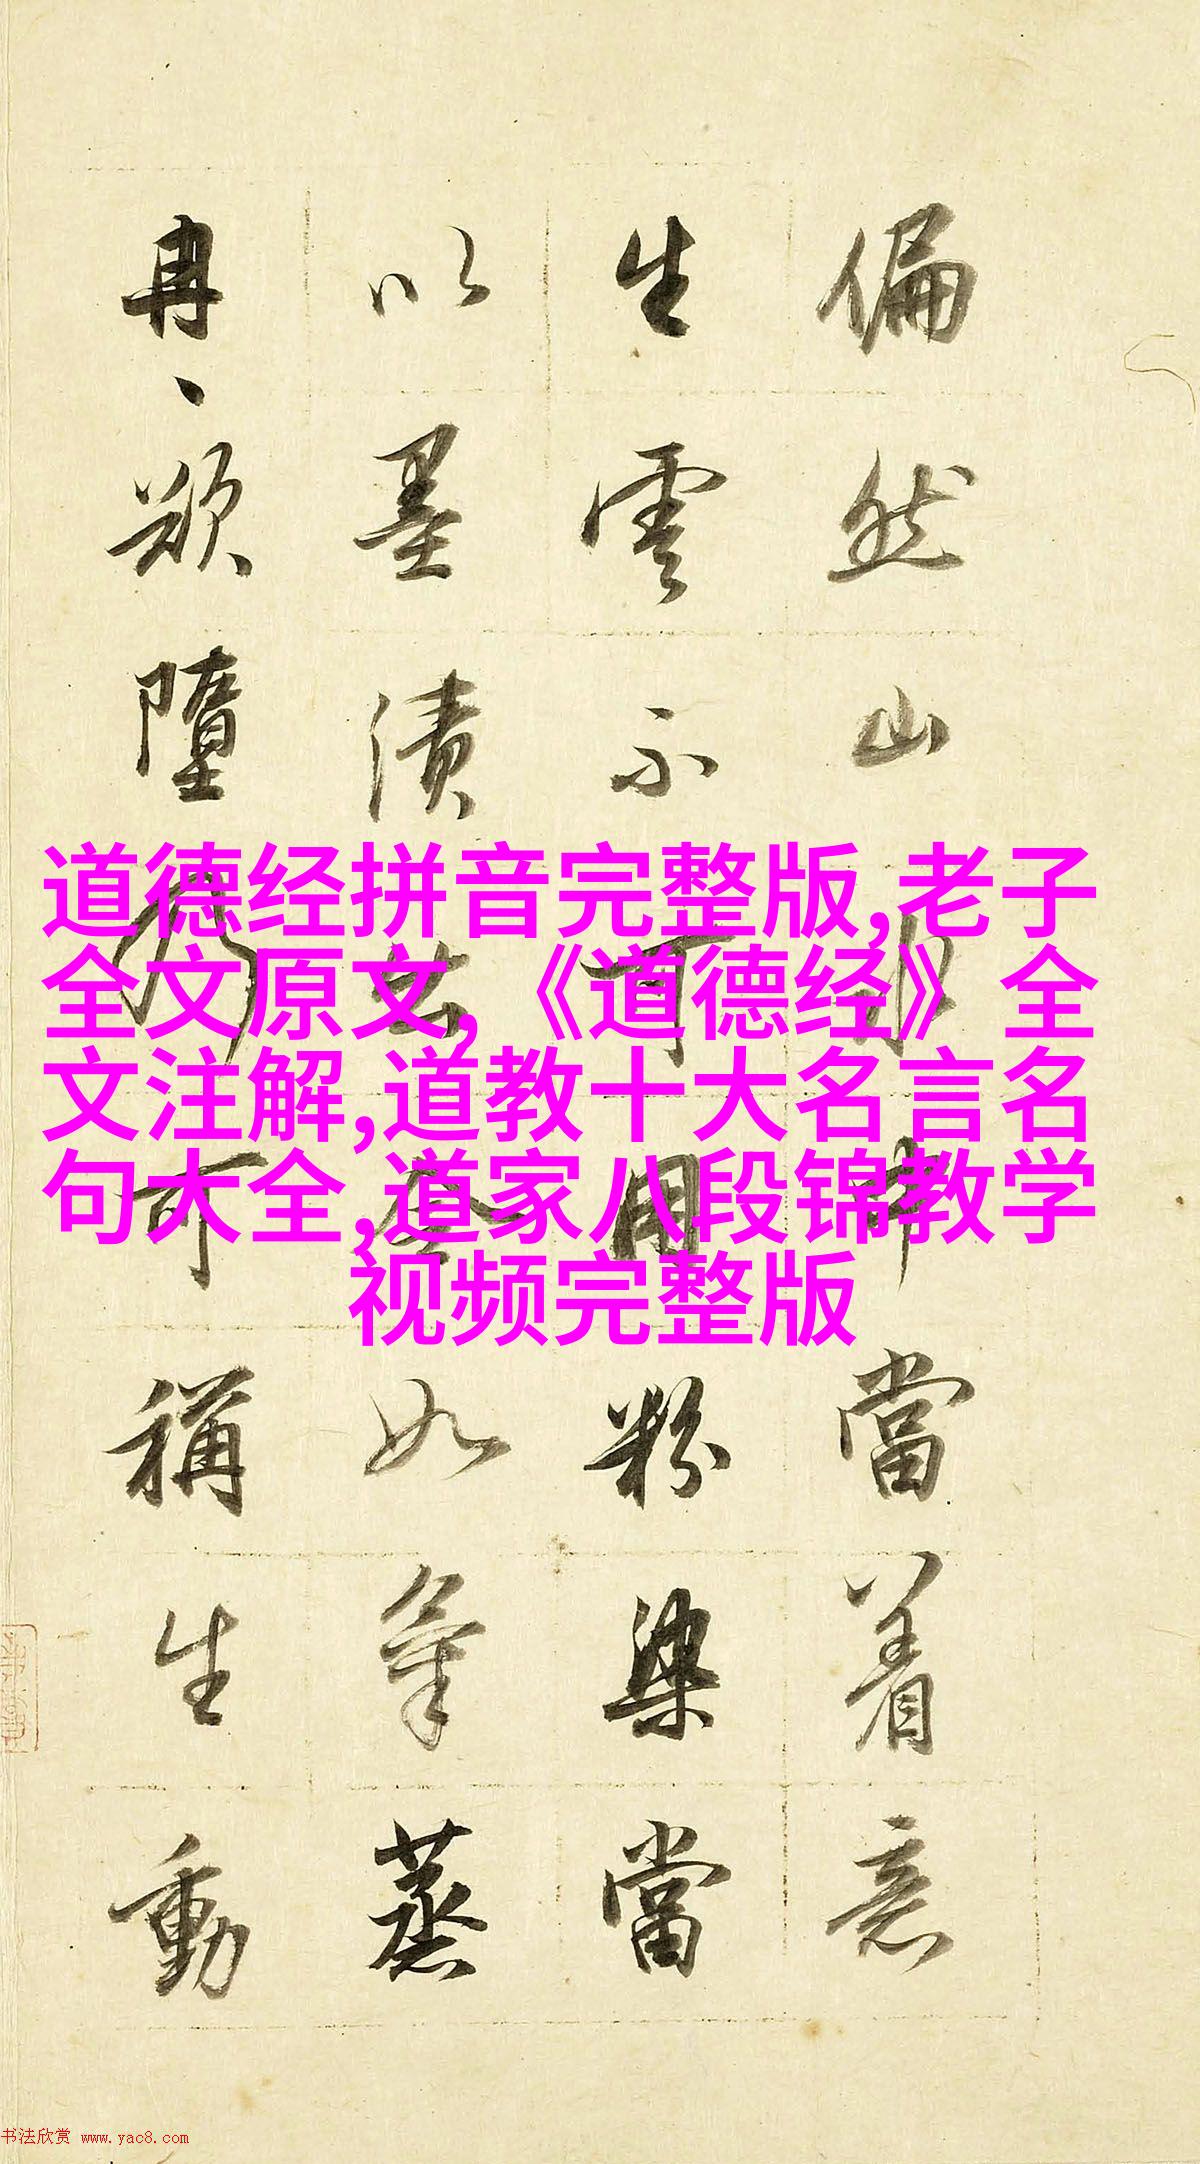 偏然山水中當着意
生雲不可用粉染當
以墨漬出令如氣蒸
冉、欲墮乃可稱生動
道德经拼音完整版,老子
全文原文,《道德经》全
文注解,道教十大名言名
句大全,道家八段锦教学
视频完整版
书法欣赏 www.yac8.com